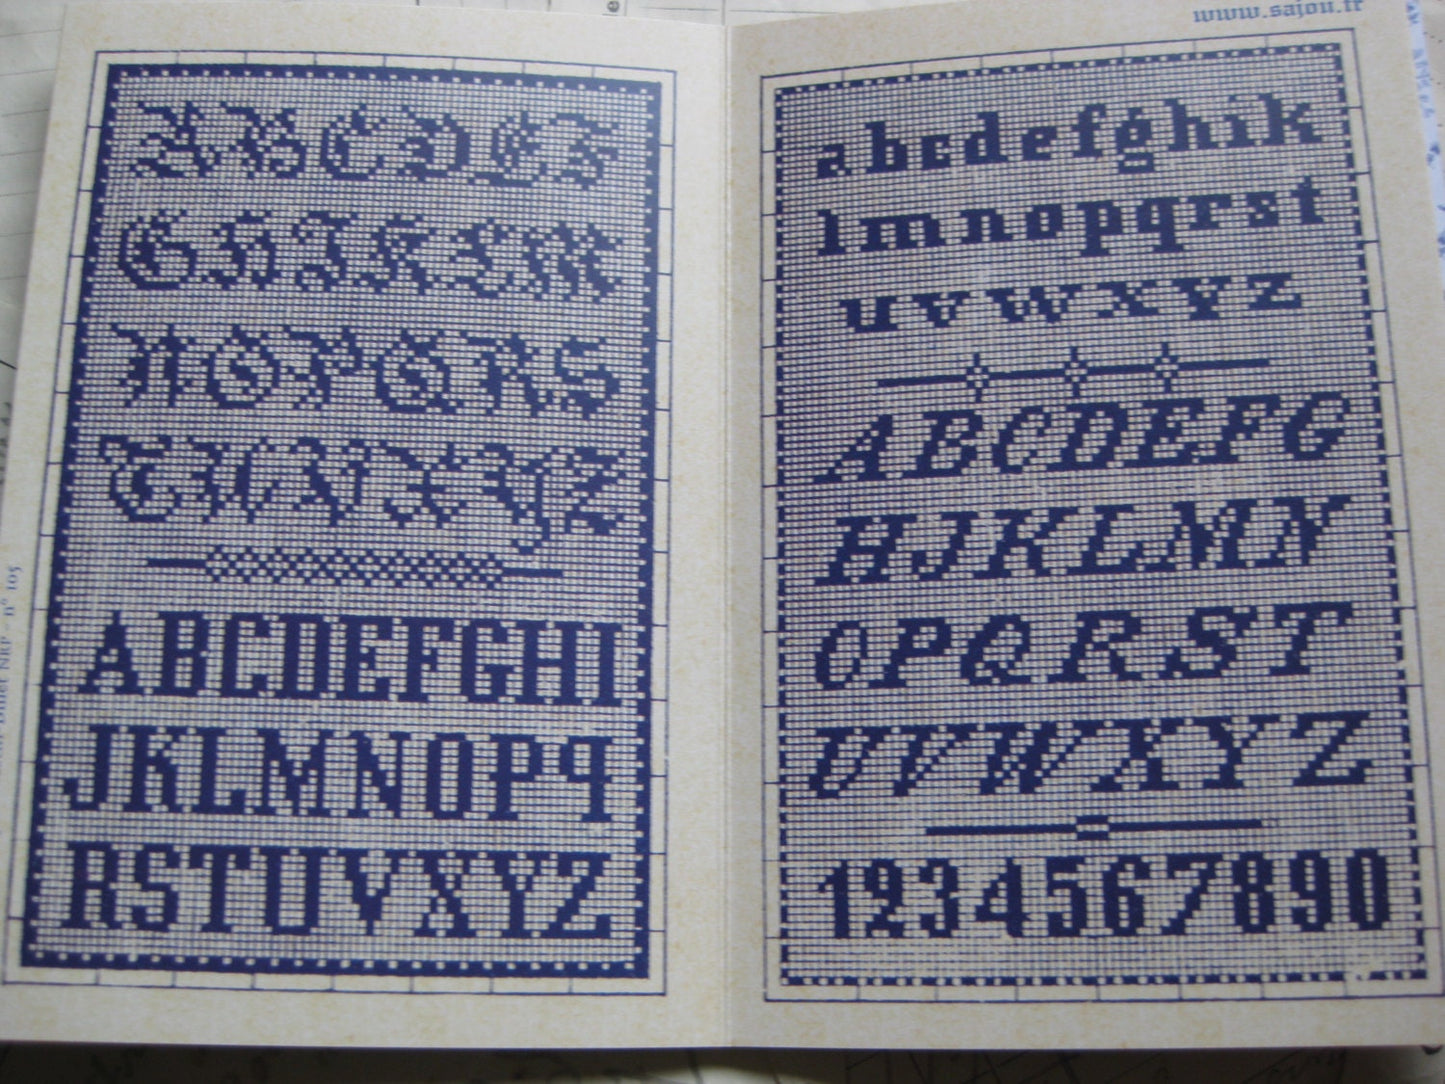 ABCDEF
GHIKLM
NOPQRS
TUVXYZ
ABCDEFGHI
JKLMNOPq
RSTUVXYZ
n° 105
www.sajou.fr
abcdefghik
lmnopqrst
uvwxyz
ABCDEFG
HJKLMN
OPQRST
UVWXYZ
1234567890